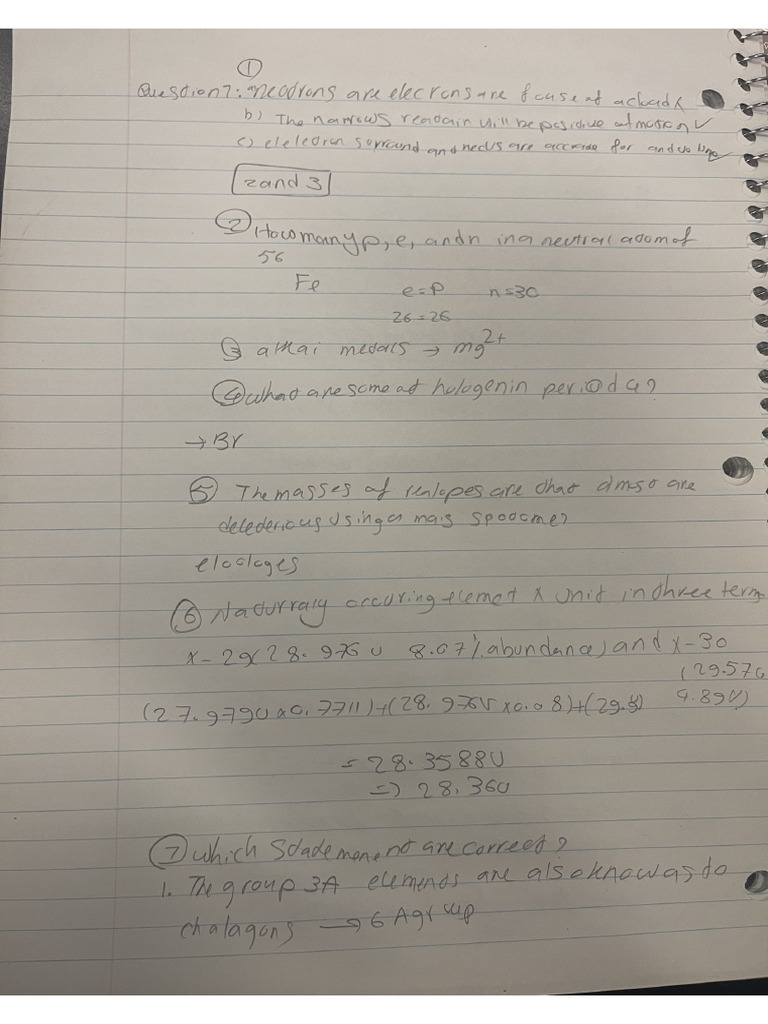 ①
Question 7: neodrons are elecrons are fcuse at acloud X
b) The narrows readain will be posidive at mation ✓
c) eleledron sorround and necus are accrade for and
2 and 3
② How many p, e, and n in a neutral adom of
56
Fe e = P n = 30
26 = 26
③ alkai medals → mg2+
④ whad are some at hologen in period 4?
→ Br
⑤ The masses of are dhad dmso are
dededericus using a mass spodomer
eloologes
⑥ Nadurraly occuring elemed X unit in dhree term
X - 29(28.976 u 8.07% abundance) and X - 30
(29.570
(27.979 U x 0.7711) + (28.976 V x 0.08) + (29. 4.89U)
= 28.3588 U
=> 28.360
⑦ which Sdademenend are correed?
1. The group 3A elemends are also know as do
chalagons → 6A group